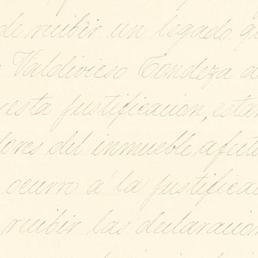 de recibir un legado qu
Valdivieso Condeza d
esta justificacion, estan
dores del inmueble, a fin de
ocurro á la justifica
recibir las declaracion